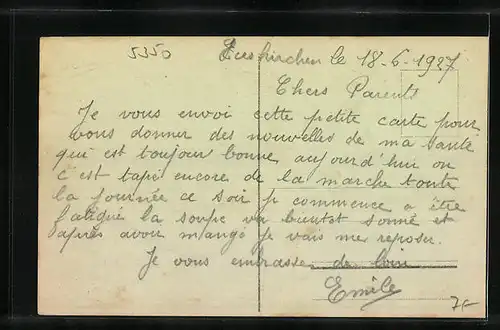 5350
Euskirchen le 18-6-1927
Chers Parents
Je vous envoi cette petite carte pour
vous donner des nouvelles de ma santé
qui est toujour bonne aujourd'hui on
c'est tapé encore de la marche toute
la journée ce soir je commence a être
fatigué la soupe va bientot sonné et
après avoir mangé je vais me reposer.
Je vous embrasse de loin
Emile